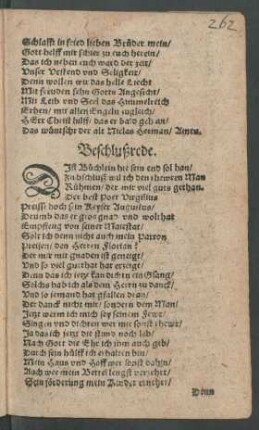 262
Schlafft in fried lieben Brüder mein/
Gott helff mir schier zu euch herein/
Das ich neben euch ward der zeit/
Unser Urstend und Seligkeit/
Denn wollen wir das helle Liecht
Mit freuden sehn Gotts Angesicht/
Mit Leib und Seel das Himmelreich
Erben/ mit allen Engeln zugleich/
HErr Christ hilff/ das es bald geh an/
Das wünscht der alt Niclas Herman/ Amen.
Beschlußrede.
DIß Büchlein hie sein end sol han/
Zu beschluß wil ich den thewren Man
Rühmen/ der mir viel guts gethan.
Der best Poet Vergilius
Preist hoch sein Keyser Augustus/
Drumb das er gros gnad und wolthat
Empfieng von seiner Maiestat/
Solt ich denn nicht auch mein Patron
Preisen/ den Herren Florian?
Der mir mit gnaden ist geneigt/
Und so viel guthat hat erzeigt/
Denn das ich jetzt kan dichten ein Gsang/
Solchs hab ich als dem Herrn zu danck/
Und so jemand hat gfallen dran/
Der danck nicht mir/ sondern dem Man/
Jetzt werm ich mich bey seinem Fewr/
Singen und dichten wer mir sonst thewr/
Ja das ich jetzt die stund noch leb/
Nach Gott die Ehr ich ihm auch geb/
Durch sein hülff ich erhalten bin/
Mein Haus und Hoff wer sonst dahin/
Auch wer mein Bettel lengst verzehrt/
Sein förderung mein Kinder ernehrt/
Denn